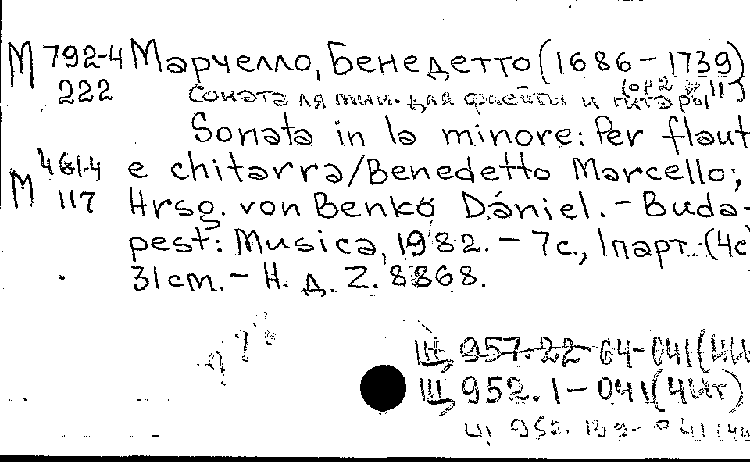 М 792-4 Марчелло, Бенедетто (1686-1739)
222 Соната ля мин. для флейты и гитары
Sonata in la minore: Per flaut
М 461-4 e chitarra/Benedetto Marcello;
117 Hrsg. von Benkő Dániel. - Buda-
pest: Musica, 1982. - 7с., 1парт. (4с
31см. - Н. д. Z. 8868.
Щ 957.22-64-041(4Ит
Щ 952.1-041(4Ит)